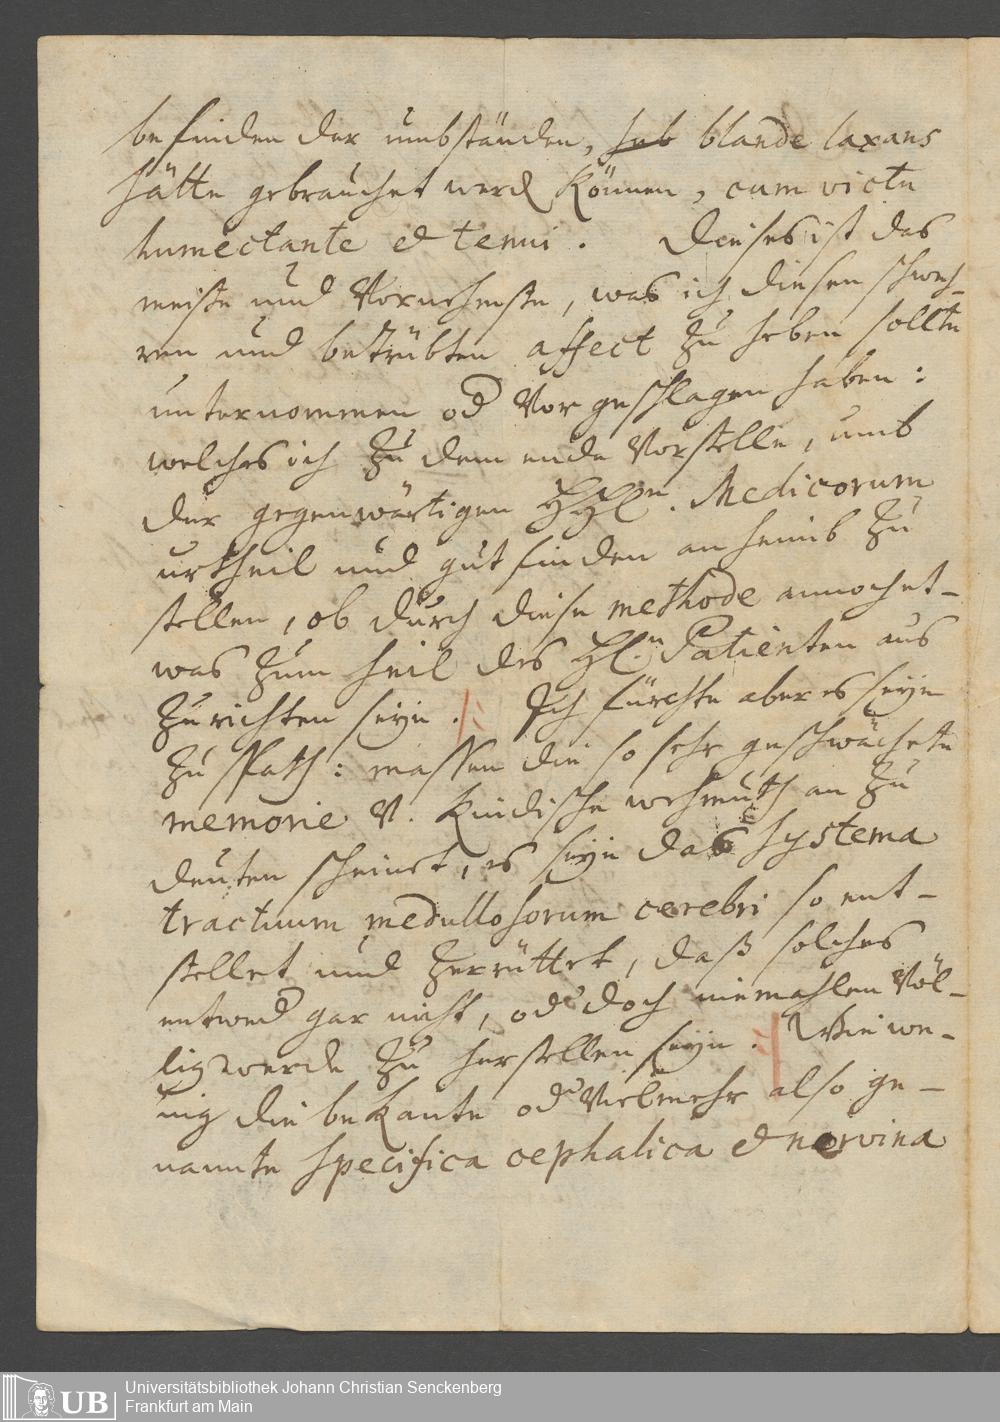 befinden der umbständen, hab blande laxans
hätte gebrauchet werd können, cum victu
humectante et tenui. Dieses ist das
meiste und Vornehmste, was ich diesen schweh-
ren und betrübten affect zu heben sollte
unternommen od Vorgeschlagen haben:
welches ich zu dem ende Vorstelle, umb
der gegenwärtigen HHln. Medicorum
urtheil und gutfinden anheimb zu
stellen, ob durch diese methode annoch et-
was zum heil des Hln. Patienten aus
zurichten seye. Ich fürchte aber es seye
zu spath: massen die so sehr geschwächete
memorie v. Kindische wehmuth an zu
deuten scheinet, es seye das Systema
tractuum medullosorum cerebri so ent-
stellet und zerrüttet, daß solches
entwed gar nicht, od doch niemahlen Völ-
lig werde zu herstellen seye. Wie we-
nig die bekante od Vielmehr also ge-
nannte specifica cephalica et nervina
UB
Universitätsbibliothek Johann Christian Senckenberg
Frankfurt am Main